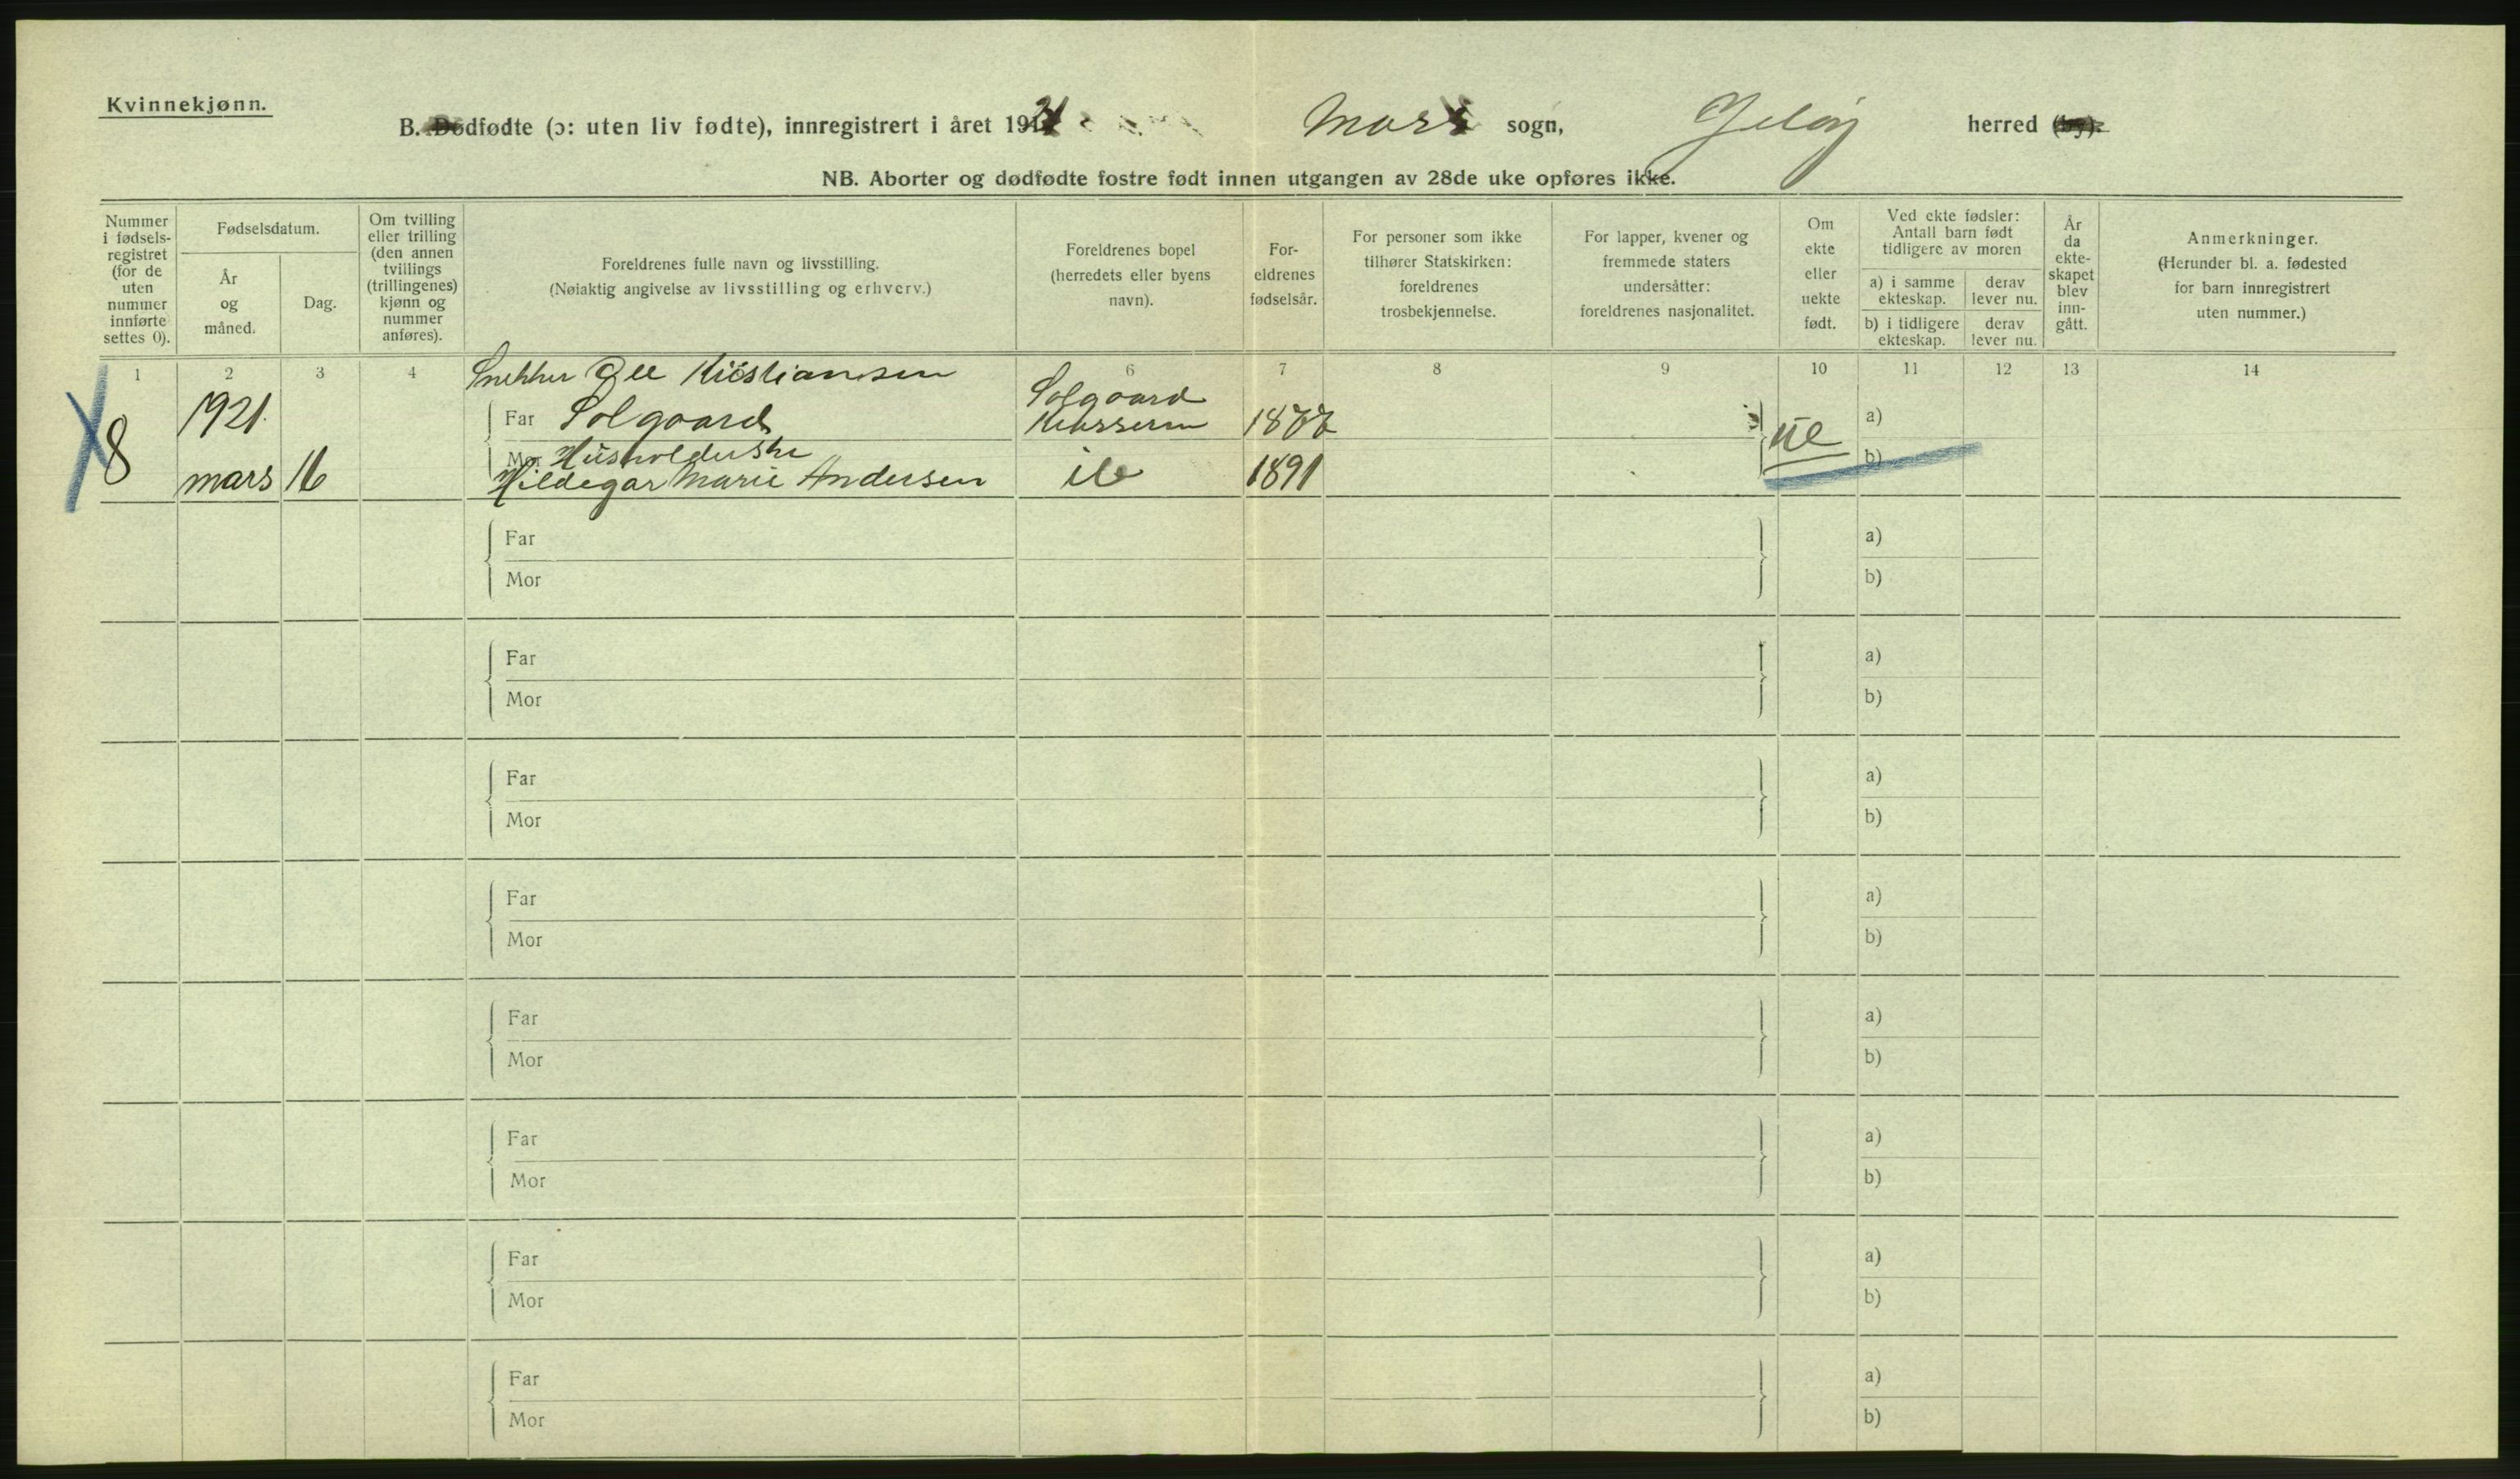 Kvinnekjønn.
B. Dødfødte (ɔ: uten liv fødte), innregistrert i året 1921 Moss sogn, Jeløy herred (by).
NB. Aborter og dødfødte fostre født innen utgangen av 28de uke opføres ikke.
Nummer i fødsels-registret (for de uten nummer innførte settes 0).
Fødselsdatum.
År og måned.
Dag.
Om tvilling eller trilling (den annen tvillings (trillingenes) kjønn og nummer anføres).
Foreldrenes fulle navn og livsstilling.
(Nøiaktig angivelse av livsstilling og erhverv.)
Foreldrenes bopel (herredets eller byens navn).
For-eldrenes fødselsår.
For personer som ikke tilhører Statskirken: foreldrenes trosbekjennelse.
For lapper, kvener og fremmede staters undersåtter: foreldrenes nasjonalitet.
Om ekte eller uekte født.
Ved ekte fødsler: Antall barn født tidligere av moren
a) i samme ekteskap.
derav lever nu.
b) i tidligere ekteskap.
derav lever nu.
År da ekte-skapet blev inn-gått.
Anmerkninger.
(Herunder bl. a. fødested for barn innregistrert uten nummer.)
1 2 3 4 6 7 8 9 10 11 12 13 14
Snekker Ole Kristiansen
8 1921 Far Solgaard Solgaard 1877 ue a)
Mor Husholderske b)
mars 16 Hildegar Marie Andersen ib 1891
Far a)
Mor b)
Far a)
Mor b)
Far a)
Mor b)
Far a)
Mor b)
Far a)
Mor b)
Far a)
Mor b)
Far a)
Mor b)
Far a)
Mor b)